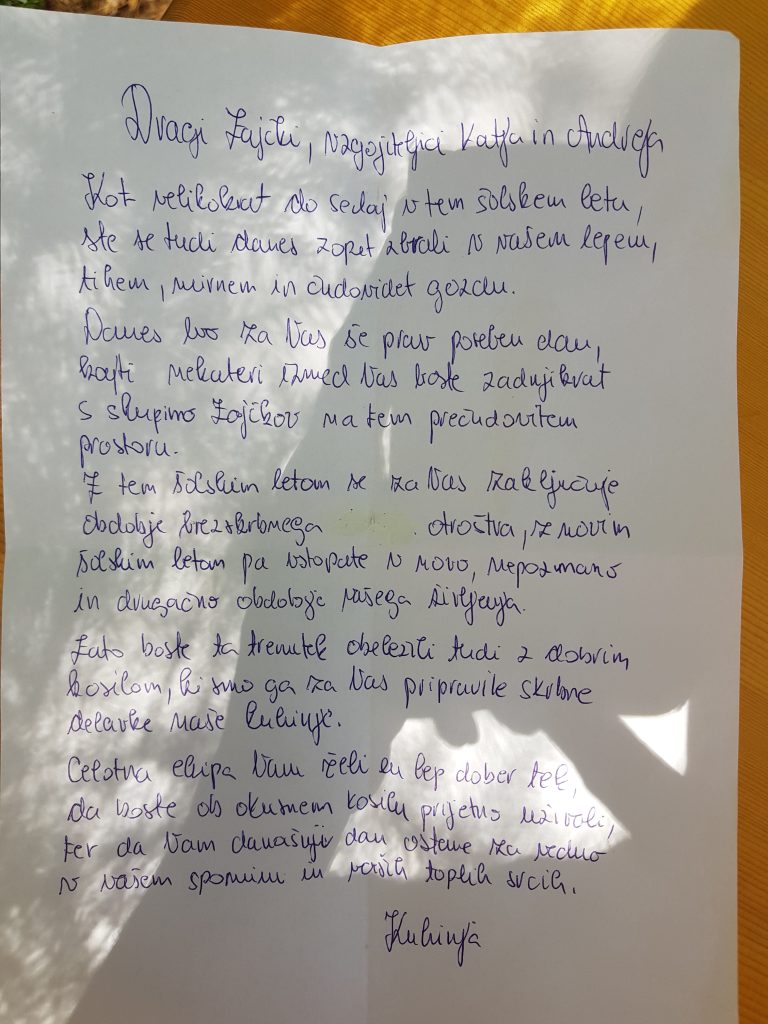 Dragi Zajčki, vzgojiteljici Katja in Andreja
Kot velikokrat do sedaj v tem šolskem letu,
ste se tudi danes zopet zbrali v vašem lepem,
tihem, mirnem in čudovitet gozdu.
Danes bo za Vas še prav poseben dan,
kajti nekateri izmed Vas boste zadnjikrat
s skupino Zajčkov na tem prečudovitem
prostoru.
Z tem šolskim letom se za Vas zaključuje
obdobje brezskrbnega otroštva, z novim
šolskim letom pa vstopate v novo, nepoznano
in drugačno obdobje vašega življenja.
Zato boste ta trenutek obeležili tudi z dobrim
kosilom, ki smo ga za Vas pripravile skrbne
delavke naše kuhinje.
Celotna ekipa Vam želi en lep dober tek,
da boste ob okusnem kosilu prijetno uživali,
ter da Vam današnji dan ostane za vedno
v vašem spominu in vaših toplih srcih.
Kuhinja